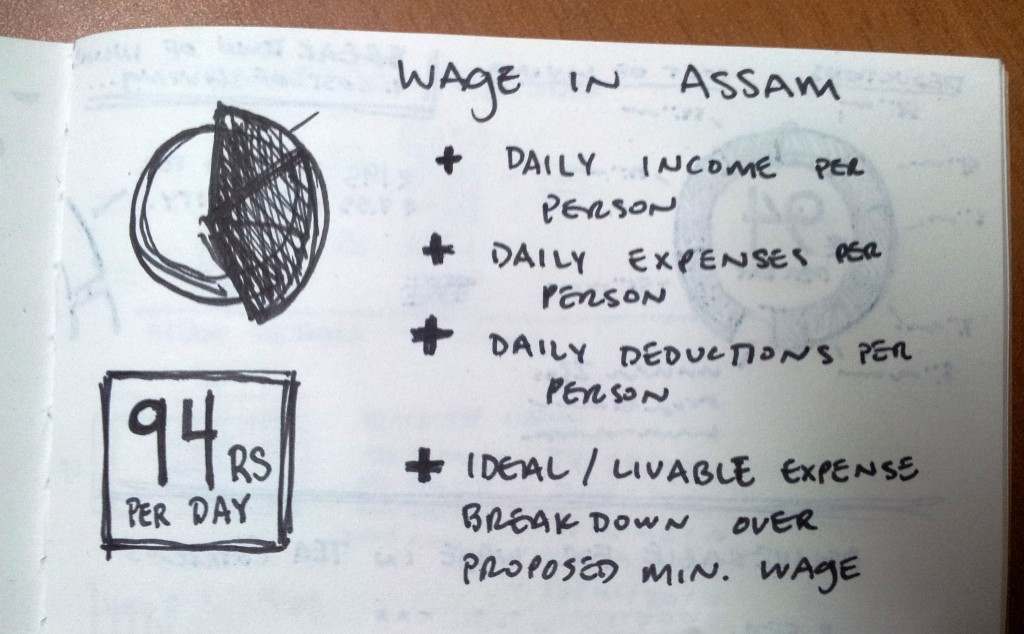 WAGE IN ASSAM
+ DAILY INCOME PER
PERSON
+ DAILY EXPENSES PER
PERSON
+ DAILY DEDUCTIONS PER
PERSON
+ IDEAL / LIVABLE EXPENSE
BREAKDOWN OVER
PROPOSED MIN. WAGE
94 RS
PER DAY